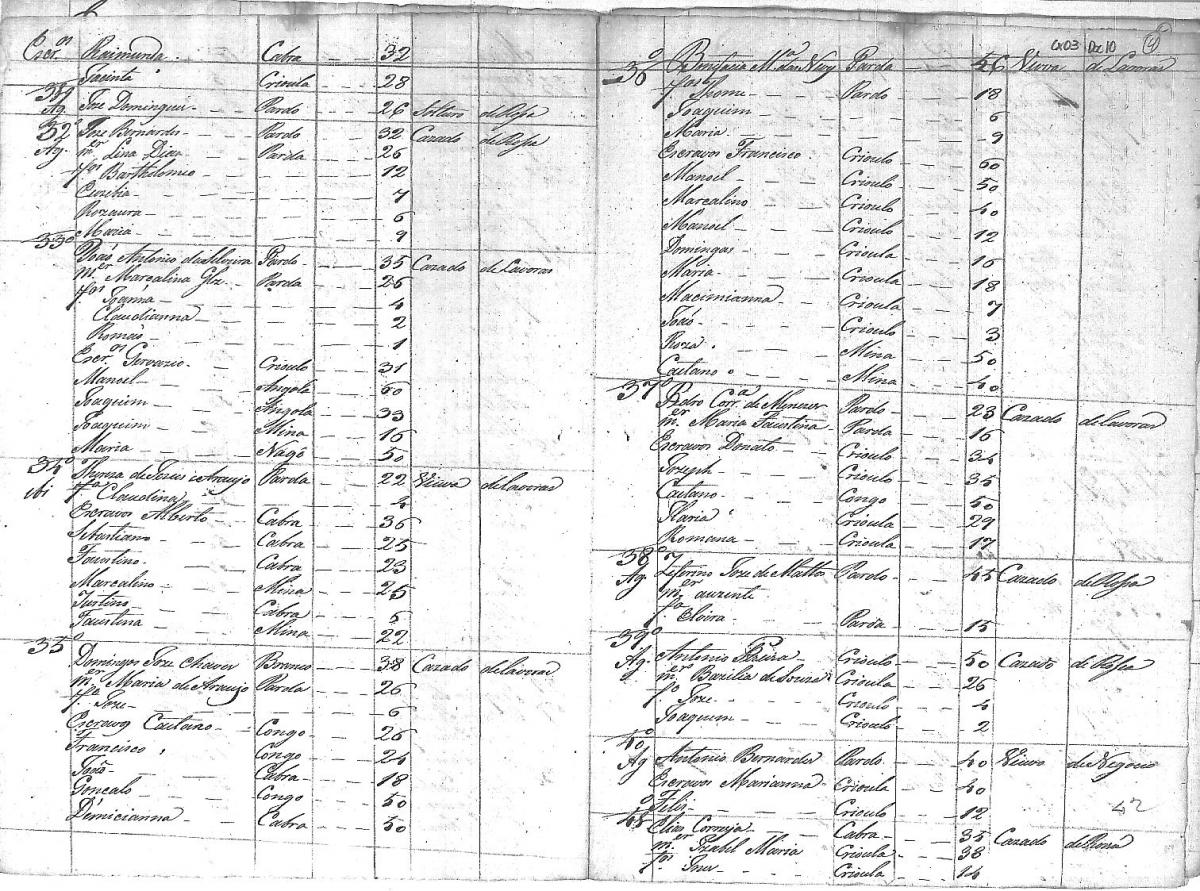 Escr.os Raimunda Cabra 32
Jacinta Crioula 28
31º
Ag. Joze Domingues Pardo 26 Solteiro de Rossa
32º Joze Bernardes Pardo 32 Cazado de Rossa
Ag. m.er Lina Dias Parda 26
f.os Bartholomeo 12
Euzebia 7
Rozaura 6
Maria 9
33º
João Antonio da Silveira Pardo 35 Cazado de Lavoras
m.er Marcalina Glz. Parda 26
f.os Joanna 4
Claudianna 2
Romão 1
Escr.os Gervazio Crioulo 31
Manoel Angola 60
Joaquim Angola 33
Joaquim Mina 16
Maria Nagô 50
34º Thereza de Jezus e Araujo Parda 22 Viuva de lavoras
ibi f.a Claudina 4
Escravos Alberto Cabra 36
Sebastiano Cabra 25
Faustino Cabra 23
Marcalino Mina 25
Justino Cabra 5
Faustina Mina 22
35º
Domingos Joze Chaves Branco 38 Cazado de lavoras
m.er Maria de Araujo Parda 26
f.o Joze 6
Escravos Caetano Congo 26
Francisco Congo 24
João Cabra 18
Goncalo Congo 50
Demicianna Cabra 50
Cx03 Dx10 4
36º Bonifacia M.a das Parda 56 Viuva de Lavoras
f.os Pardo 18
Joaquim 6
Maria 9
Escravos Francisco Crioulo 60
Manoel Crioulo 50
Marcalino Crioulo 40
Manoel Crioulo 12
Domingas Crioula 16
Maria Crioula 18
Macimianna Crioula 7
João Crioulo 3
Roza Mina 50
Caetano Mina 40
37º
Pedro Corr.a de Menezes Pardo 23 Cazado de lavoras
m.er Maria Faustina Parda 16
Escravos Donato Crioulo 34
Jozeph Crioulo 35
Caetano Congo 50
Maria Crioula 29
Romana Crioula 17
38º
Ag. Zeferino Joze de Mattos Pardo 45 Cazado de Rossa
m.er auzente
f.a Elvira Parda 15
39º
Ag. Antonio Crioulo 50 Cazado de Rossa
m.er Bazilia de Souza Crioula 26
f.o Joze Crioulo 4
Joaquim Crioulo 2
40º
Ag Antonio Bernardes Pardo 40 Viuvo de Negocio
Escravos Marianna Crioula 40
Felis Crioulo 12
42
Elias Correya Cabra 35 Cazado de Rossa
m.er Izabel Maria Crioula 38
f.os Crioula 14